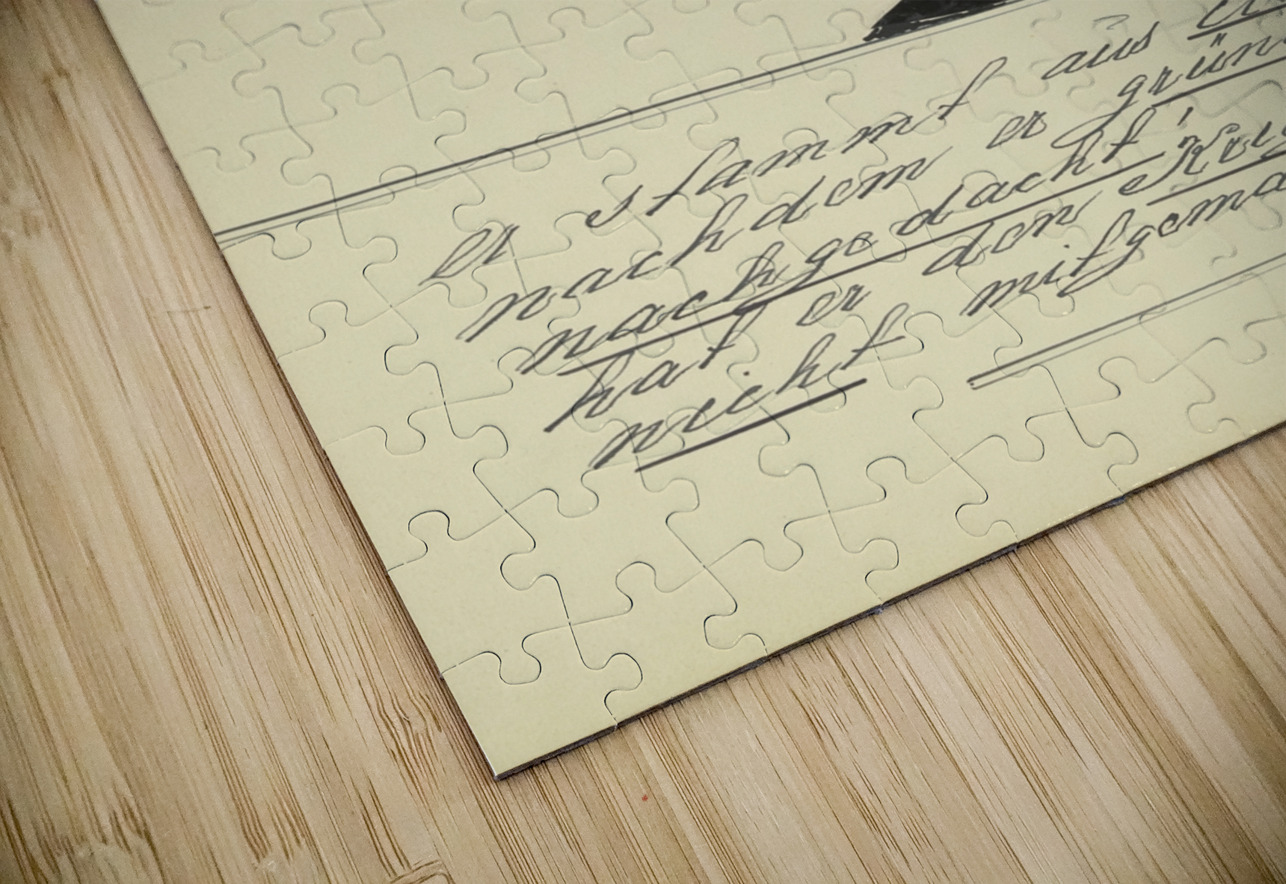 Er stammt aus
nachdem er
nachgedacht'
hat er den
nicht mitgema